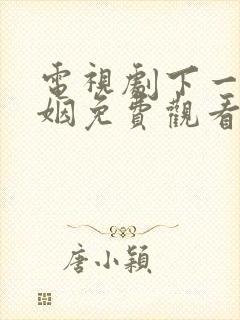 電視劇下一
姻免費觀看
唐小穎